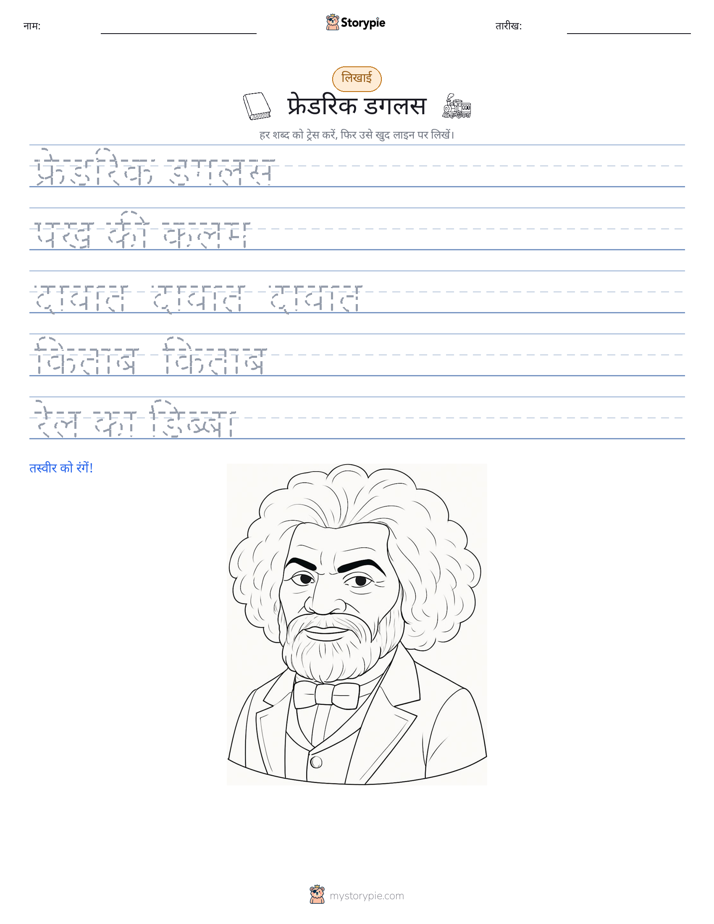 नाम:
Storypie
तारीख:
लिखाई
फ्रेडरिक डगलस
हर शब्द को ट्रेस करें, फिर उसे खुद लाइन पर लिखें।
फ्रेडरिक डगलस
पंख की कलम
दावात दावात दावात
किताब किताब
रेल का डिब्बा
तस्वीर को रंगें!
mystorypie.com